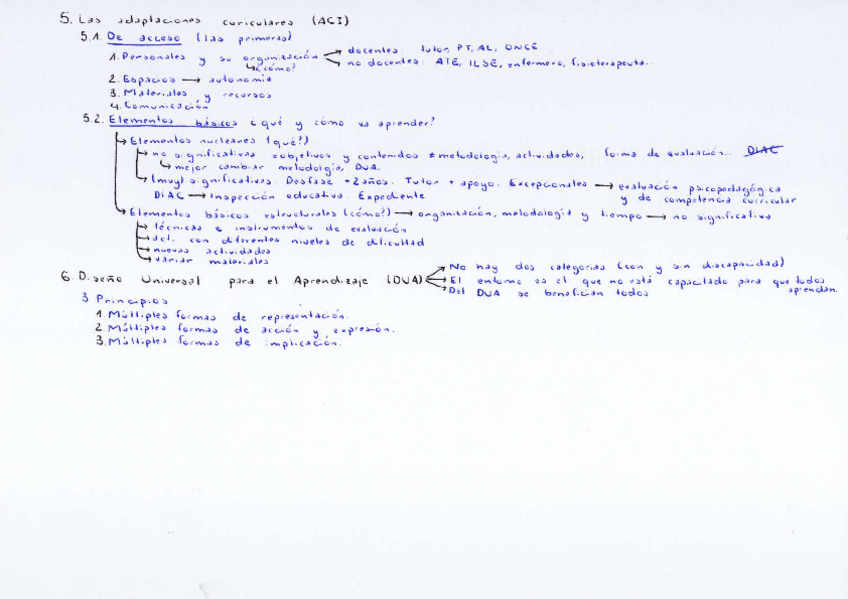 5. Las adaptaciones curriculares (ACI)
5.1. De acceso (las primeras)
1. Personales y su organización → docentes: tutor, PT, AL, ONCE
↳ ¿cómo? → no docentes: ATE, ILSE, enfermero, fisioterapeuta...
2. Espacios → autonomía
3. Materiales y recursos
4. Comunicación
5.2. Elementos básicos ¿qué y cómo va aprender?
→ Elementos nucleares (qué?)
→ no significativas =objetivos y contenidos ≠ metodología, actividades, forma de evaluación... DIAC
↳ mejor cambiar metodolgía, DUA.
↳ (muy) significativas. Desfase +2años. Tutor + apoyo. Excepcionales → evaluación psicopedagógica
DIAC → Inspección educativa. Expediente y de competencia curricular
→ Elementos básicos estructurales (cómo?) → organización, metodología y tiempo → no significativa
→ técnicas e instrumentos de evaluación
→ act. con diferentes niveles de dificultad
→ nuevas actividades
→ variar materiales
6. Diseño Universal para el Aprendizaje (DUA) → No hay dos categorías (con y sin discapacidad)
→ El entorno es el que no está capacitado para que todos aprendan.
→ Del DUA se benefician todos
3 Principios
1. Múltiples formas de representación.
2 Múltiples formas de acción y expresión.
3. Múltiples formas de implicación.